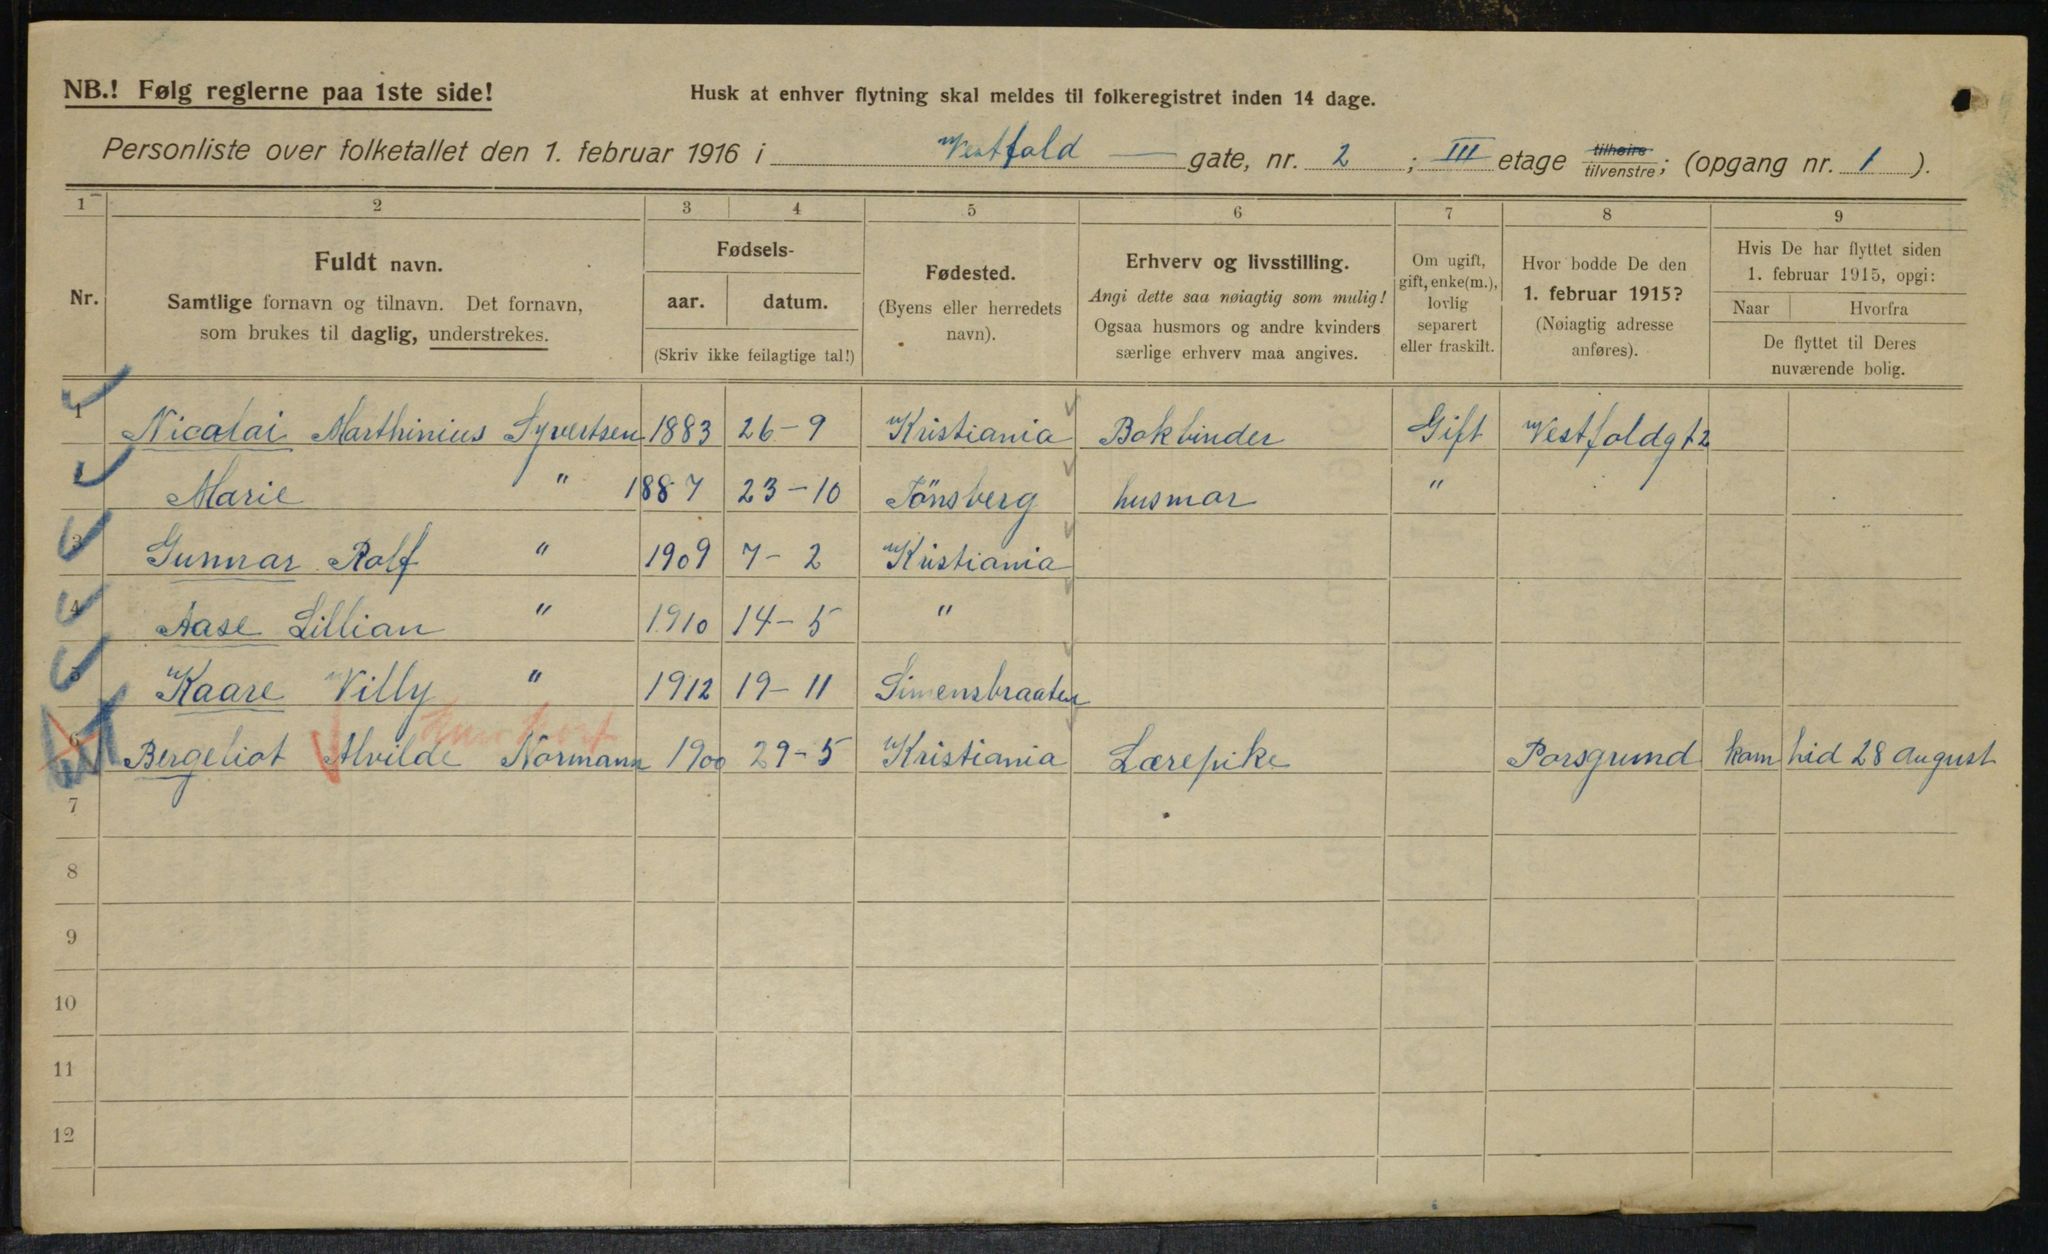 NB.! Følg reglerne paa 1ste side!
Husk at enhver flytning skal meldes til folkeregistret inden 14 dage.
Personliste over folketallet den 1. februar 1916 i Vestfold — gate, nr. 2 ; III etage tilhøire/tilvenstre; (opgang nr. 1 ).
1 2 3 4 5 6 7 8 9
Nr.
Fuldt navn.
Samtlige fornavn og tilnavn. Det fornavn,
som brukes til daglig, understrekes.
Fødsels-
aar. datum.
(Skriv ikke feilagtige tal!)
Fødested.
(Byens eller herredets
navn).
Erhverv og livsstilling.
Angi dette saa nøiagtig som mulig!
Ogsaa husmors og andre kvinders
særlige erhverv maa angives.
Om ugift,
gift, enke(m.),
lovlig
separert
eller fraskilt.
Hvor bodde De den
1. februar 1915?
(Nøiagtig adresse
anføres).
Hvis De har flyttet siden
1. februar 1915, opgi:
Naar Hvorfra
De flyttet til Deres
nuværende bolig.
1 Nicolai Marthinius Syvertsen 1883 26-9 Kristiania Bokbinder Gift Vestfoldgt 2
Marie " 1887 23-10 Tönsberg husmor "
3 Gunnar Rolf " 1909 7-2 Kristiania
4 Aase Lillian " 1910 14-5 "
5 Kaare Villy " 1912 19-11 Simensbraaten
6 Bergeliot Alvilde Normann 1900 29-5 Kristiania Lærepike Porsgrund kom hid 28 august
7
8
9
10
11
12